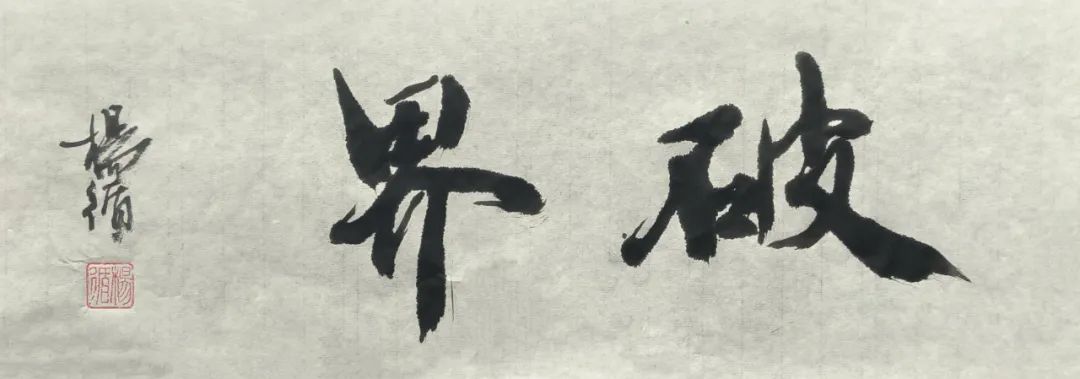 破界
楊循
楊循